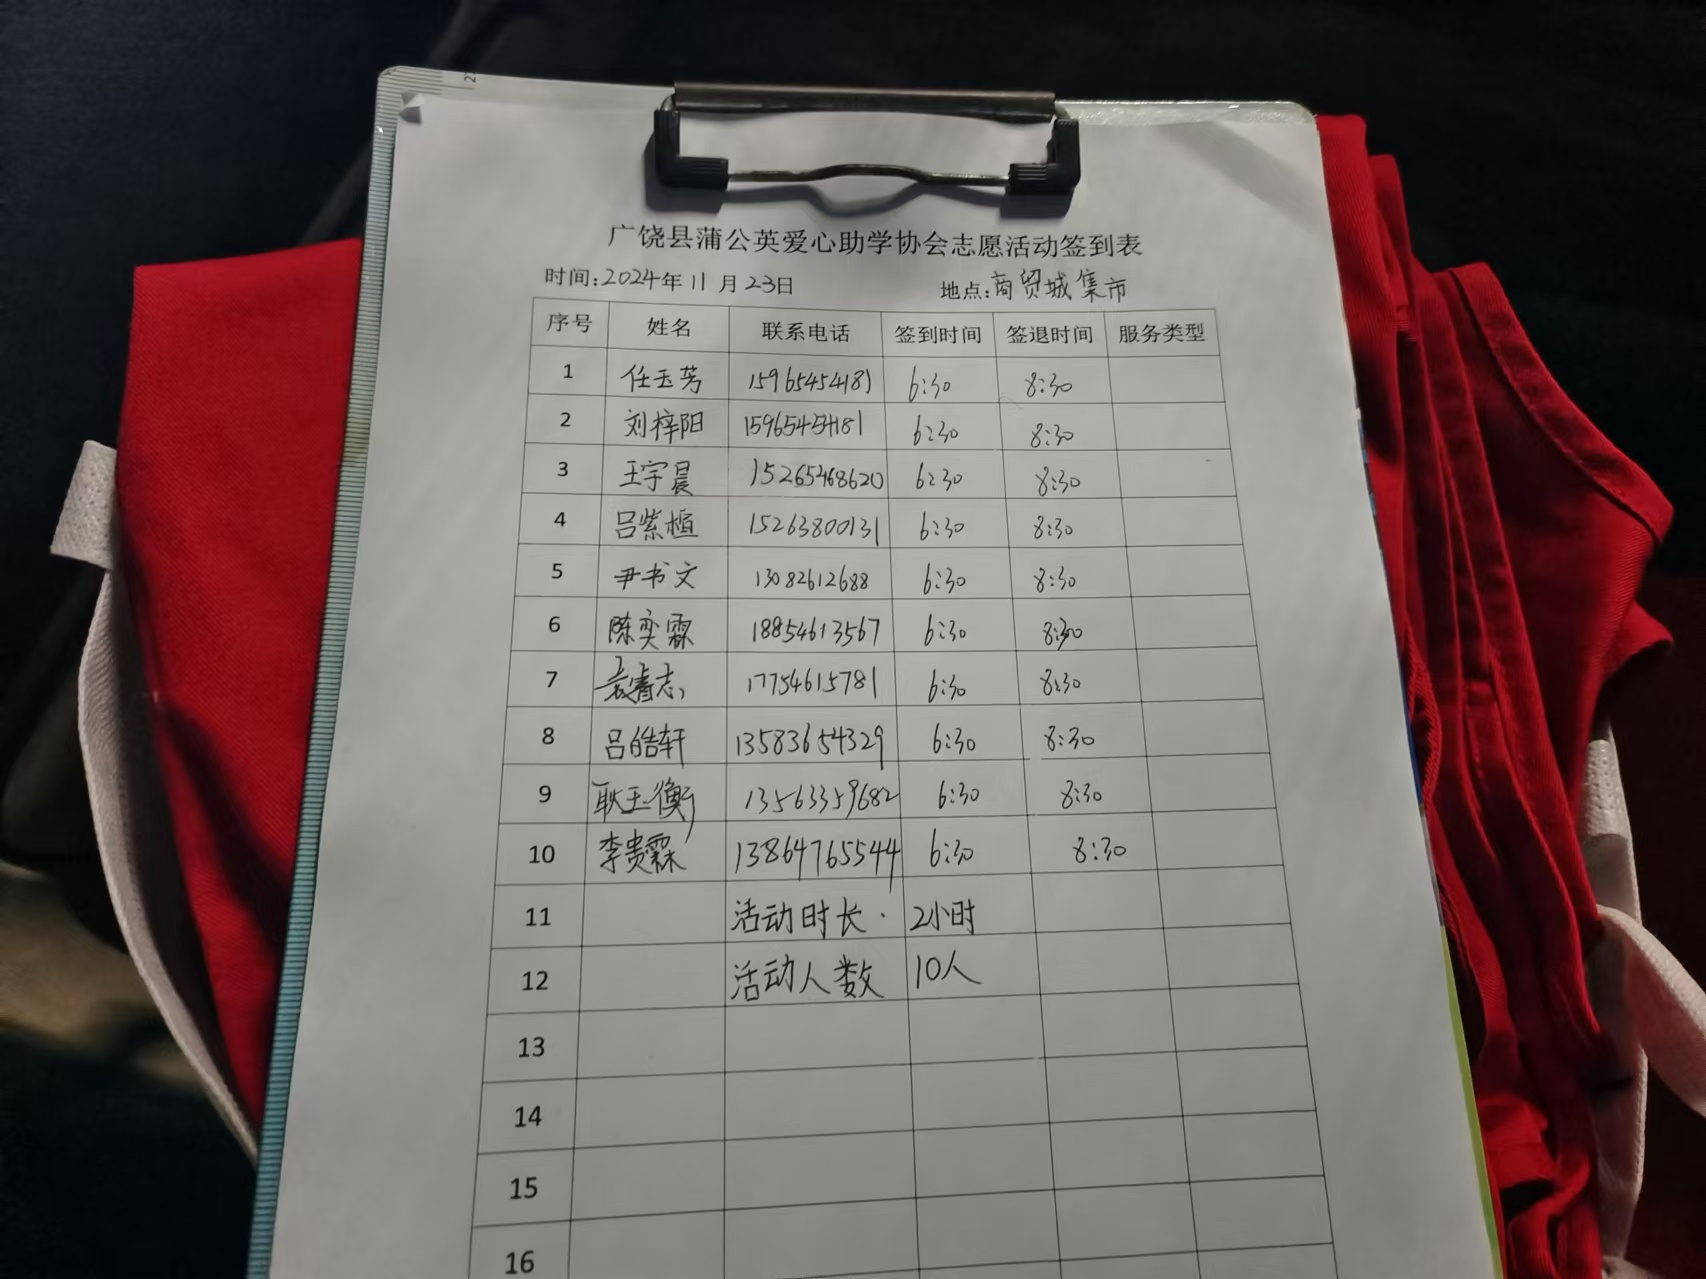 广饶县蒲公英爱心助学协会志愿活动签到表
时间:2024年11月23日 地点:商贸城集市
序号 姓名 联系电话 签到时间 签退时间 服务类型
1 任玉芳 15965454181 6:30 8:30
2 刘梓阳 15965454181 6:30 8:30
3 王宇晨 15265468620 6:30 8:30
4 吕紫植 15263800131 6:30 8:30
5 尹书文 13082612688 6:30 8:30
6 陈奕霖 18854613567 6:30 8:30
7 17754615781 6:30 8:30
8 吕皓轩 13583654329 6:30 8:30
9 耿玉衡 13563359682 6:30 8:30
10 李贵霖 13864765544 6:30 8:30
11 活动时长· 2小时
12 活动人数 10人
13
14
15
16